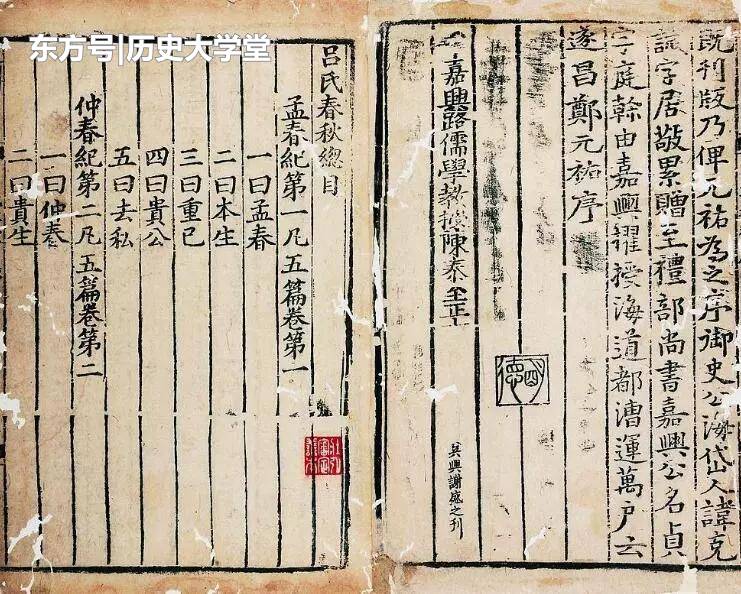 东方号|历史大学堂
既刋版乃俾元祐為之序御史公海岱人諱克
誠字居敬累贈至禮部尚書嘉興公名貞
字庭幹由嘉興擢授海道都漕運萬戶云
遂昌鄭元祐序
嘉興路儒學教授陳泰至正
德
吳興謝盛之刊
呂氏春秋總目
孟春紀第一凡五篇卷第一
一曰孟春
二曰本生
三曰重己
四曰貴公
五曰去私
仲春紀第二凡五篇卷第二
一曰仲春
二曰貴生